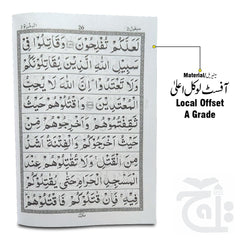 البقرة ٢
26
سيقول ٢
لَعَلَّكُمْ تُفْلِحُوْنَ ۝ وَقَاتِلُوْا فِیْ
سَبِيْلِ اللّٰهِ الَّذِيْنَ يُقَاتِلُوْنَكُمْ
وَلَا تَعْتَدُوْا اِنَّ اللّٰهَ لَا يُحِبُّ
الْمُعْتَدِيْنَ ۝ وَاقْتُلُوْهُمْ حَيْثُ
ثَقِفْتُمُوْهُمْ وَاَخْرِجُوْهُمْ مِّنْ
حَيْثُ اَخْرَجُوْكُمْ وَالْفِتْنَةُ اَشَدُّ
مِنَ الْقَتْلِ وَلَا تُقٰتِلُوْهُمْ عِنْدَ
الْمَسْجِدِ الْحَرَامِ حَتّٰى يُقٰتِلُوْكُمْ
فِيْهِ فَاِنْ قٰتَلُوْكُمْ فَاقْتُلُوْهُمْ
Material/میٹریل
آفسٹ لوکل اعلیٰ
Local Offset
A Grade